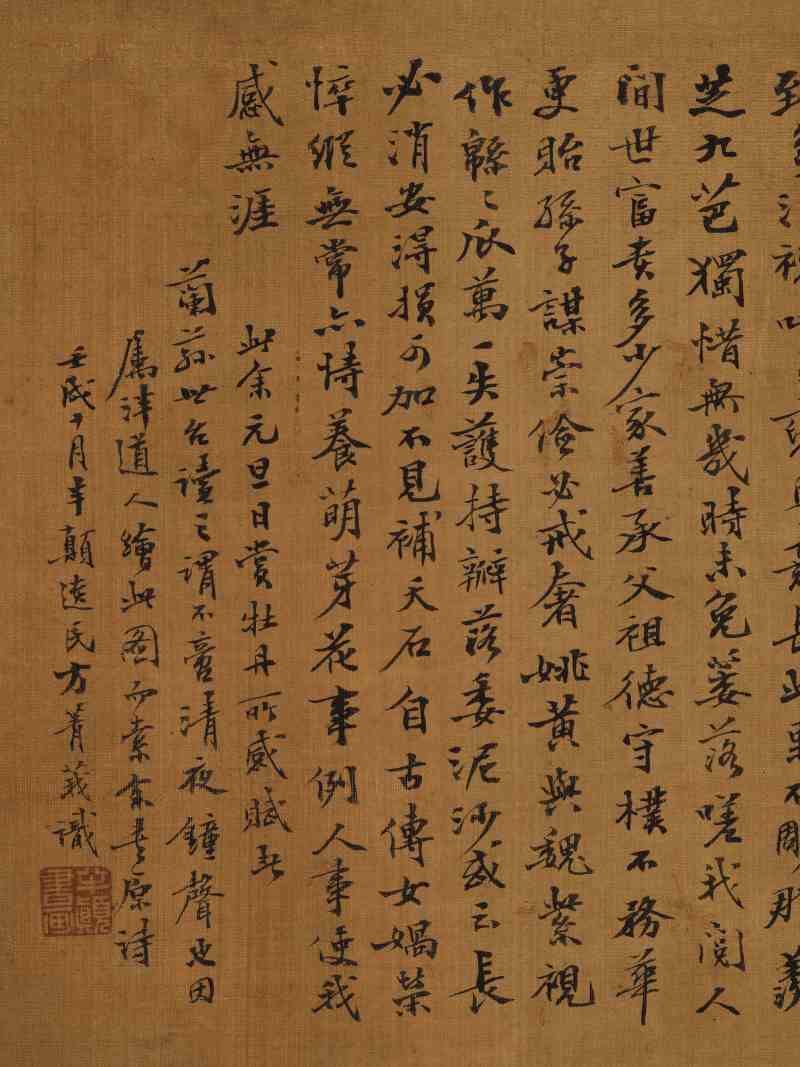 芝九芭獨惜無幾時未免萎落嗟我閱人
間世富貴多少家善承父祖德守樸不務華
更貽孫子謀崇儉必戒奢姚黃與魏紫視
作緜〻瓜萬一失護持瓣落委泥沙或云長
必消安得損可加不見補天石自古傳女媧榮
悴縱無常亦恃養萌芽花事例人事使我
感無涯
此余元旦日賞牡丹所感賦者
蘭蓀世台讀之謂不啻清夜鐘聲也因
屬津道人繪此圖而索余書原詩
壬戌十月半顛遺民方菁莪識
半顛書画